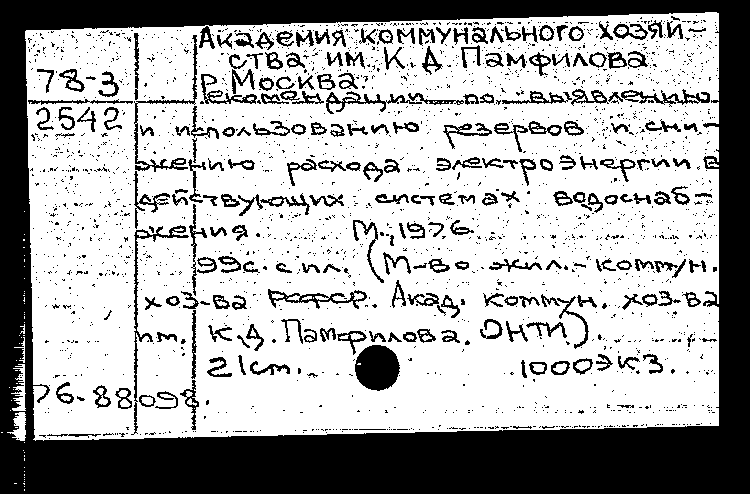 Академия коммунального хозяй-
ства им. К. Д. Памфилова.
78-3 Москва.
Рекомендации по выявлению
2542 и использованию резервов и сни-
жению расхода электроэнергии в
действующих системах водоснаб-
жения. М., 1976.
99с. с ил. (М-во жил.-коммун.
хоз-ва РСФСР. Акад. коммун. хоз-ва
им. К.Д. Памфилова. ОНТИ).
21см. 1000экз.
76-88098.